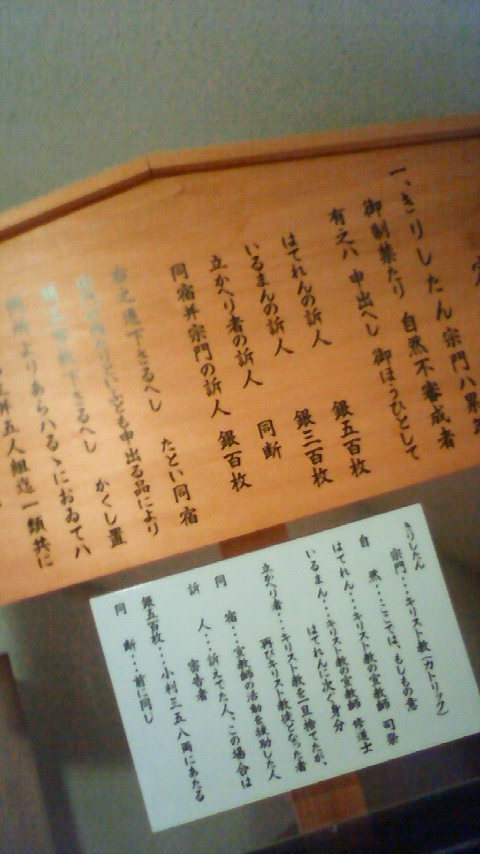 定
一、きりしたん宗門ハ累年
御制禁たり 自然不審成者
有之ハ 申出へし 御ほうひとして
はてれんの訴人 銀五百枚
いるまんの訴人 銀三百枚
立かへり者の訴人 同断
同宿并宗門の訴人 銀百枚
右之通下さるへし たとい同宿
宗門の内たりといふとも申出る品により
銀五百枚下さるへし かくし置
他所よりあらハるゝにおゐてハ
并五人組迄一類共に
きりしたん
宗門・・・キリスト教(カトリック)
自然・・・ここでは、もしもの意
はてれん・・・キリスト教の宣教師 司祭
いるまん・・・キリスト教の宣教師 修道士
はてれんに次ぐ身分
立かへり者・・・キリスト教を一旦捨てたが、
再びキリスト教徒となった者
同宿・・・宣教師の活動を援助した人
訴人・・・訴えでた人、この場合は
密告者
銀五百枚・・・小判三五八両にあたる
同断・・・前に同し